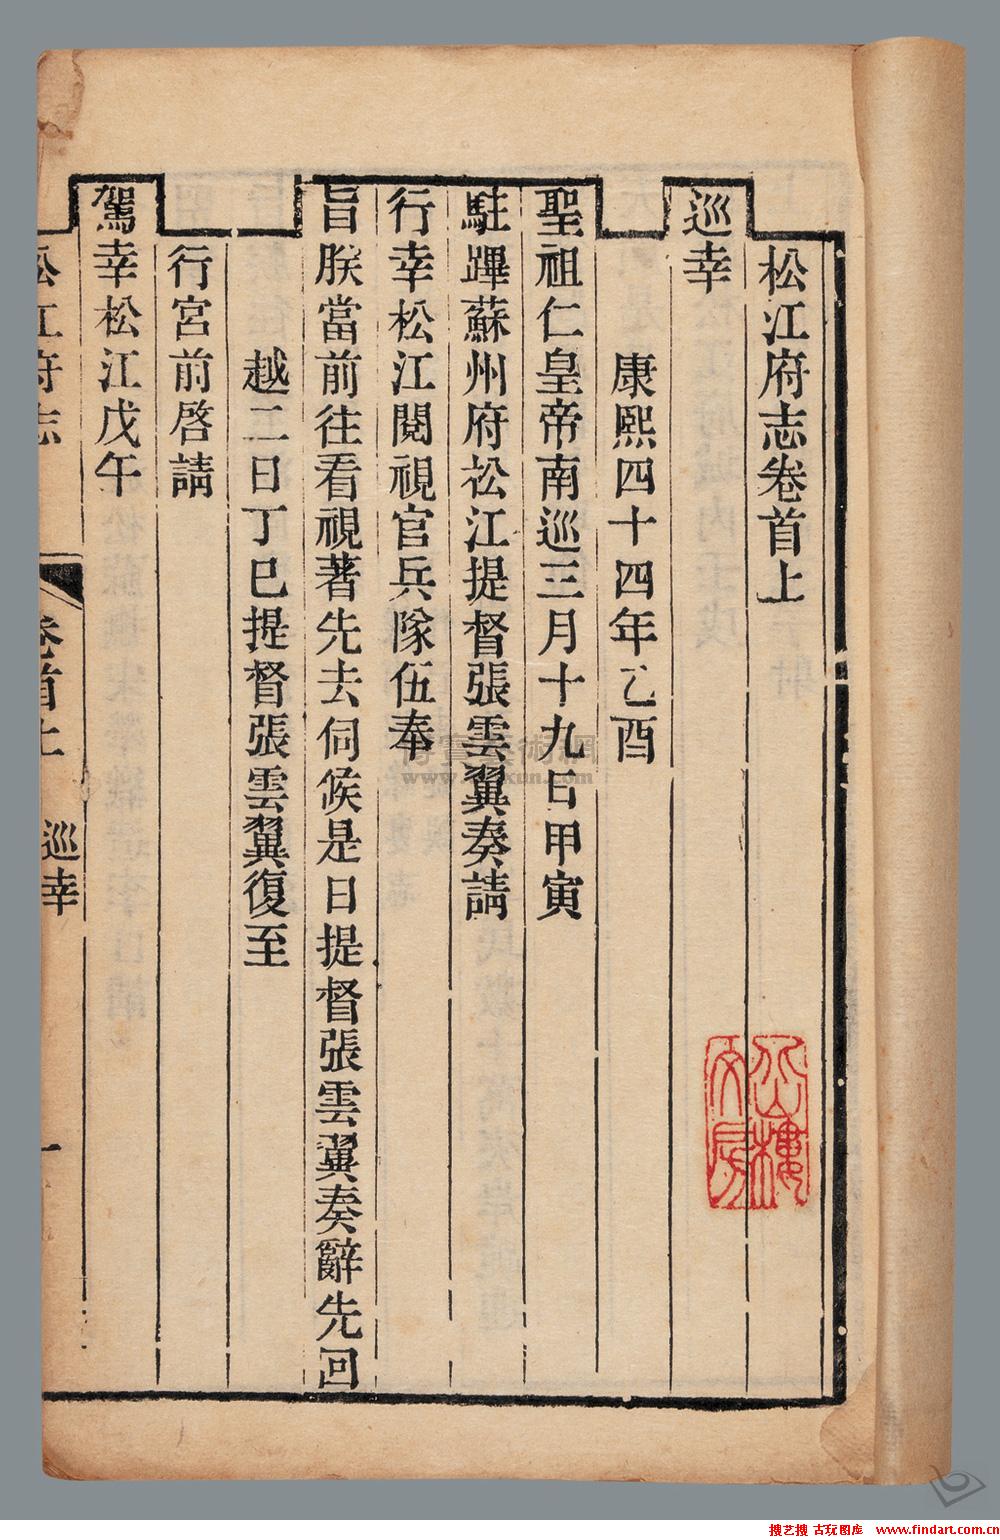 松江府志卷首上
巡幸
康熙四十四年乙酉
聖祖仁皇帝南巡三月十九日甲寅
駐蹕蘇州府松江提督張雲翼奏請
行幸松江閱視官兵隊伍奉
旨朕當前往看視著先去伺候是日提督張雲翼奏辭先回
越二日丁巳提督張雲翼復至
行宮前啓請
駕幸松江戊午
松江府志
卷首上
巡幸
一
樓
文房
搜艺搜 古玩图库 www.findart.com.cn